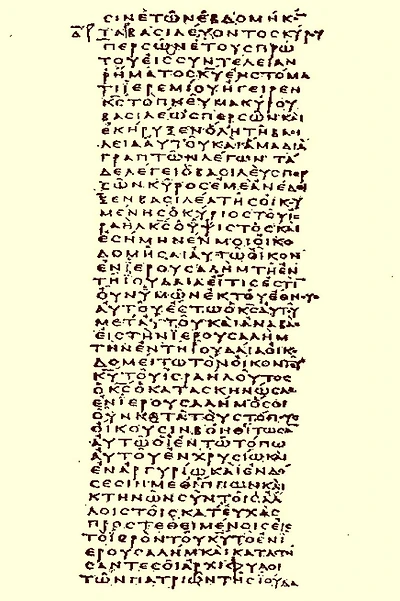 ΣΙΝΕΤΩΝΕΒΔΟΜΗΚΟ̅
ΤΑΒΑΣΙΛΕΥΟΝΤΟΣΚΥΡΟΥ
ΠΕΡΣΩΝΕΤΟΥΣΠΡΩ
ΤΟΥΕΙΣΣΥΝΤΕΛΕΙΑΝ
ΡΗΜΑΤΟΣΚ̅Υ̅ΕΝΣΤΟΜΑ
ΤΙΙΕΡΕΜΙΟΥΗΓΕΙΡΕΝ
Κ̅Σ̅ΤΟΠΝΕΥΜΑΚΥΡΟΥ
ΒΑΣΙΛΕΩΣΠΕΡΣΩΝΚΑΙ
ΕΚΗΡΥΞΕΝΟΛΗΤΗΒΑΣΙ
ΛΕΙΑΑΥΤΟΥΚΑΙΑΜΑΔΙΑ
ΓΡΑΠΤΩΝΛΕΓΩΝΤΑ
ΔΕΛΕΓΕΙΟΒΑΣΙΛΕΥΣΠΕΡ
ΣΩΝΚΥΡΟΣΕΜΕΑΝΕΔΕΙ
ΞΕΝΒΑΣΙΛΕΑΤΗΣΟΙΚΟΥ
ΜΕΝΗΣΟΚΥΡΙΟΣΤΟΥΙΣ
ΡΑΗΛΚ̅Σ̅ΟΥΨΙΣΤΟΣΚΑΙ
ΕΣΗΜΗΝΕΝΜΟΙΟΙΚΟ
ΔΟΜΗΣΑΙΑΥΤΩΟΙΚΟΝ
ΕΝΙΕΡΟΥΣΑΛΗΜΤΗΕΝ
ΤΗΙΟΥΔΑΙΑΕΙΤΙΣΕΣΤΙ̅
ΟΥΝΥΜΩΝΕΚΤΟΥΕΘΝΟΥΣ
ΑΥΤΟΥΕΣΤΩΟΚ̅Σ̅ΑΥΤΟΥ
ΜΕΤΑΥΤΟΥΚΑΙΑΝΑΒΑΣ
ΕΙΣΤΗΝΙΕΡΟΥΣΑΛΗΜ
ΤΗΝΕΝΤΗΙΟΥΔΑΙΑΟΙΚΟ
ΔΟΜΕΙΤΩΤΟΝΟΙΚΟΝΤΟΥ
Κ̅Υ̅ΤΟΥΙΣΡΑΗΛΟΥΤΟΣ
ΟΚ̅Σ̅ΟΚΑΤΑΣΚΗΝΩΣΑΣ
ΕΝΙΕΡΟΥΣΑΛΗΜΟΣΟΙ
ΟΥΝΚΑΤΑΤΟΥΣΤΟΠΟΥΣ
ΟΙΚΟΥΣΙΝΒΟΗΘΙΤΩΣΑ̅
ΑΥΤΩΟΙΕΝΤΩΤΟΠΩ
ΑΥΤΟΥΕΝΧΡΥΣΙΩΚΑΙ
ΕΝΑΡΓΥΡΙΩΚΑΙΕΝΔΟ
ΣΕΣΙΝΜΕΘΙΠΠΩΝΚΑΙ
ΚΤΗΝΩΝΣΥΝΤΟΙΣΑΛ
ΛΟΙΣΤΟΙΣΚΑΤΕΥΧΑΣ
ΠΡΟΣΤΕΘΕΙΜΕΝΟΙΣΕΙΣ
ΤΟΙΕΡΟΝΤΟΥΚ̅Υ̅ΤΟΕΝΙ
ΕΡΟΥΣΑΛΗΜΚΑΙΚΑΤΑΣΤΗ
ΣΑΝΤΕΣΟΙΑΡΧΙΦΥΛΟΙ
ΤΩΝΠΑΤΡΙΩΝΤΗΣΙΟΥΔΑ